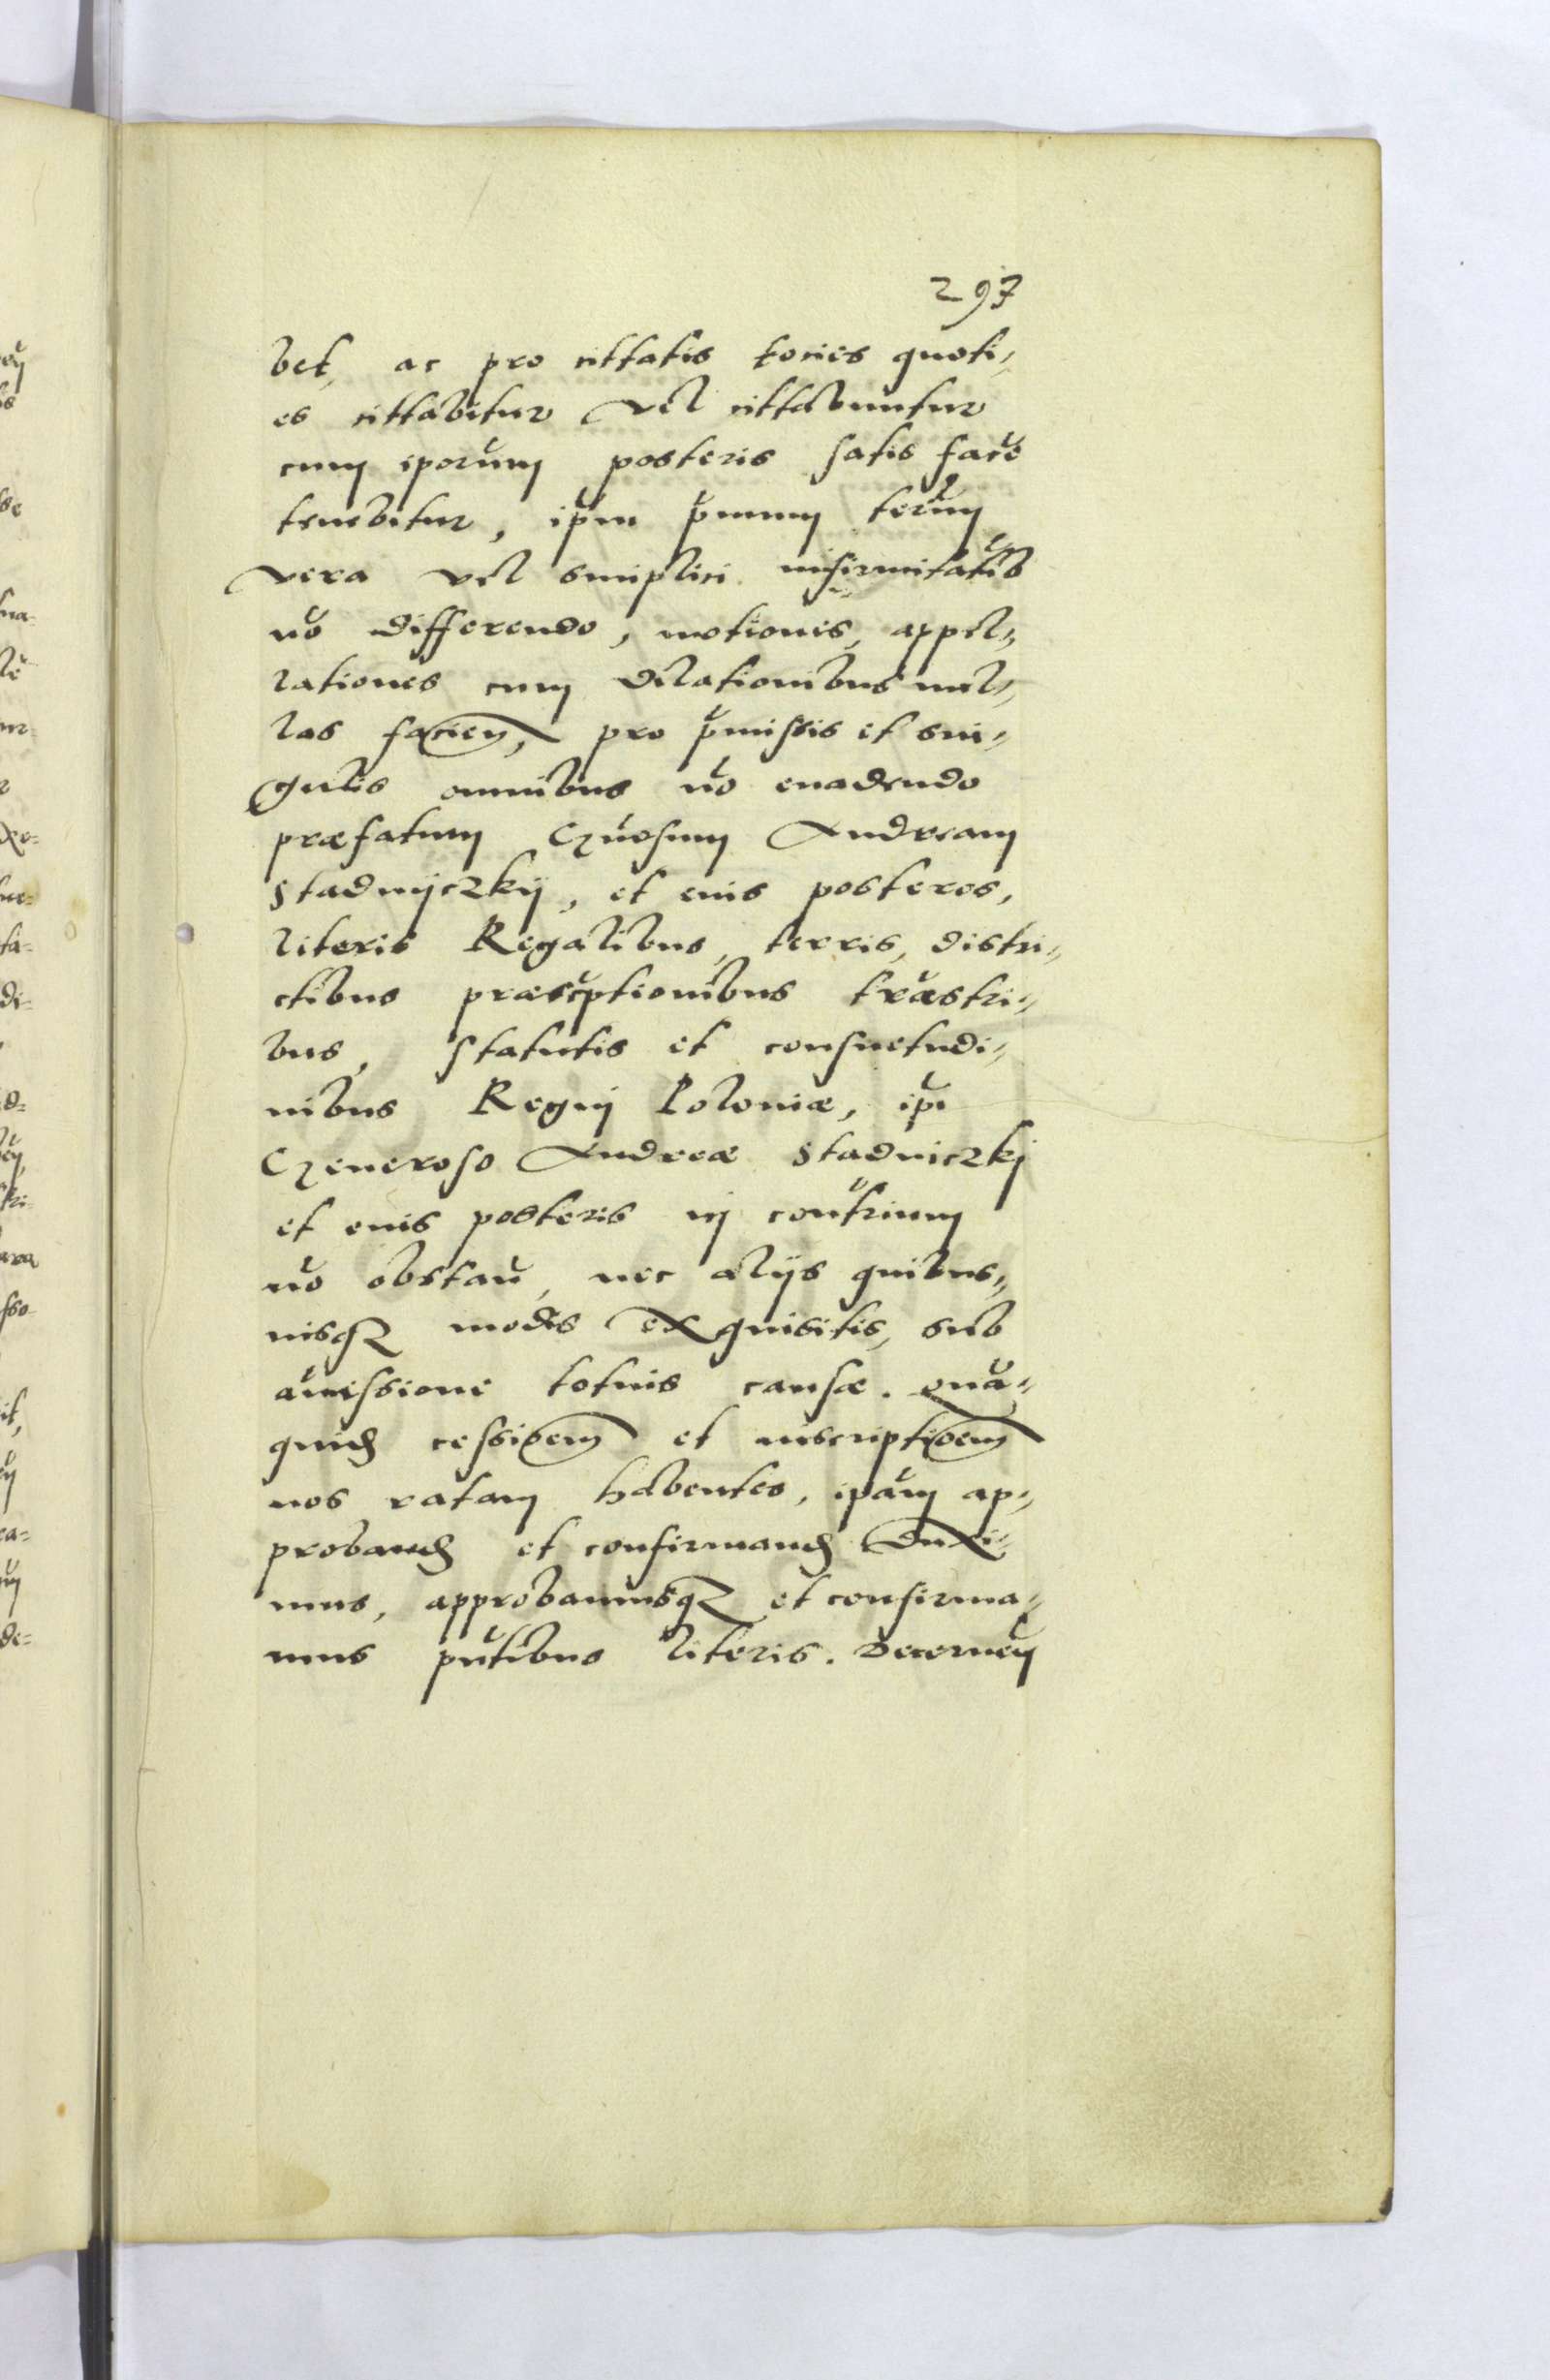 297
bet, ac pro cittatis tocies quoti„
es cittabitur vel cittabuntur
cum iporum posteris satis face
tenebitur, ipm primum termn
vera vel simplici infirmitatib
no differendo, motiones, appel„
lationes cum dilationibus nul„
las facien, pro pmissis et sin„
gulis omnibus no evadendo
præfatum Gnosum Andream
Stadnyczkij, et eius posteros,
literis Regalibus, terris, distri„
ctibus præscptionibus træstri„
bus, statutis et consuetudi„
nibus Regni Poloniæ, ipi
Generoso Andreæ Stadniczkj
et eius posteris in contrium
no obstan, nec alijs quibus„
uisq modis exquisitis, sub
amissione totius causæ. Qua„
quid cessioem et inscriptioem
nos ratam habentes, ipam ap„
proband et confirmand duxi„
mus, approbamusq et confirma„
mus pntibus literis. Decernen